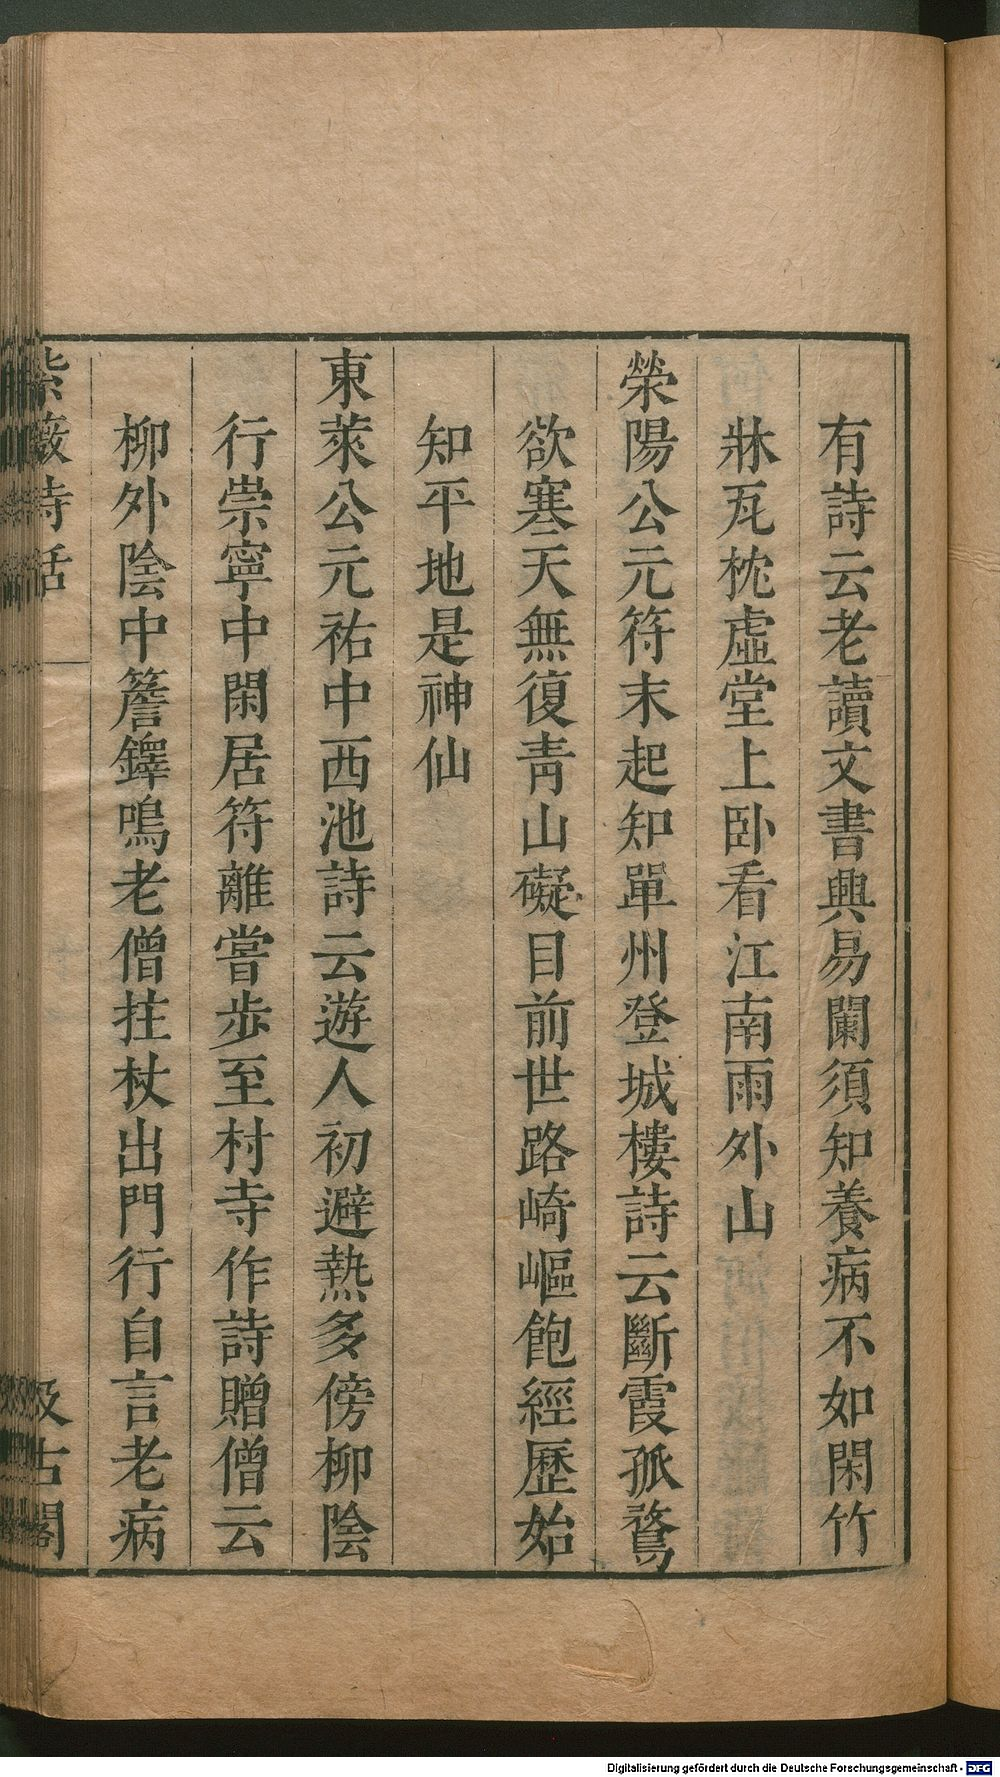 有詩云老讀文書興易闌須知養病不如閑竹
牀瓦枕虛堂上卧看江南雨外山
滎陽公元符末起知單州登城樓詩云斷霞孤鶩
欲寒天無復青山礙目前世路崎嶇飽經歷始
知平地是神仙
東萊公元祐中西池詩云遊人初避熱多傍柳陰
行崇寧中閑居符離嘗步至村寺作詩贈僧云
柳外陰中簷鐸鳴老僧拄杖出門行自言老病
紫薇詩話
汲古閣
Digitalisierung gefördert durch die Deutsche Forschungsgemeinschaft - DFG